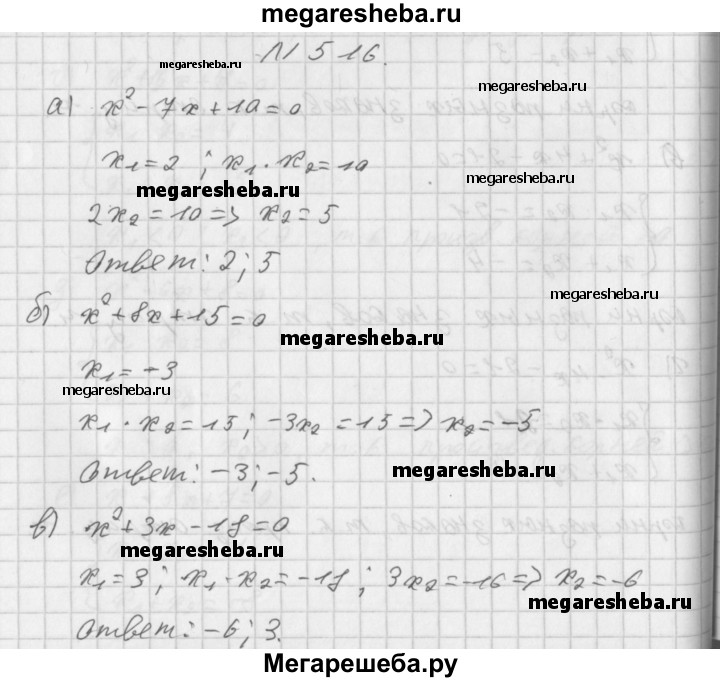 megaresheba.ru
N 516.
megaresheba.ru
megaresheba.ru
а) x² - 7x + 10 = 0
x₁ = 2 ; x₁ · x₂ = 10
megaresheba.ru
megaresheba.ru
2x₂ = 10 => x₂ = 5
Ответ: 2; 5
megaresheba.ru
б) x² + 8x + 15 = 0
megaresheba.ru
x₁ = -3
megaresheba.ru
x₁ · x₂ = 15; -3x₂ = 15 => x₂ = -5
Ответ: -3; -5.
megaresheba.ru
в) x² + 3x - 18 = 0
megaresheba.ru
x₁ = 3; x₁ · x₂ = -18 ; 3x₂ = -16 => x₂ = -6
megaresheba.ru
Ответ: -6; 3.
Мегарешеба.ру